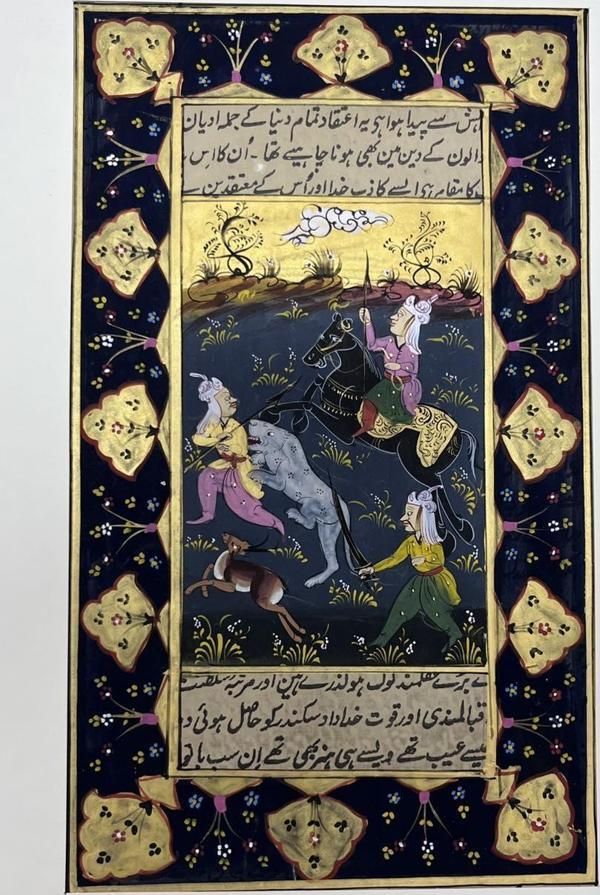 سے پیدا ہوا ہی یہ اعتقاد تمام دنیا کے جملہ ادیان
والون کے دین مین بھی ہونا چاہیے تھا ۔ اُن کا اس
کا مقام ہی ایسے کاذب خدا اور اُس کے معتقدین
بڑے عقلمند لوگ ہو گذرے ہین اور مرتبہ سلطنت
اقبالمندی اور قوت خداداد سکندر کو حاصل ہوئی
جیسے عیب تھے ویسے ہی ہنر بھی تھے اِن سب باتو